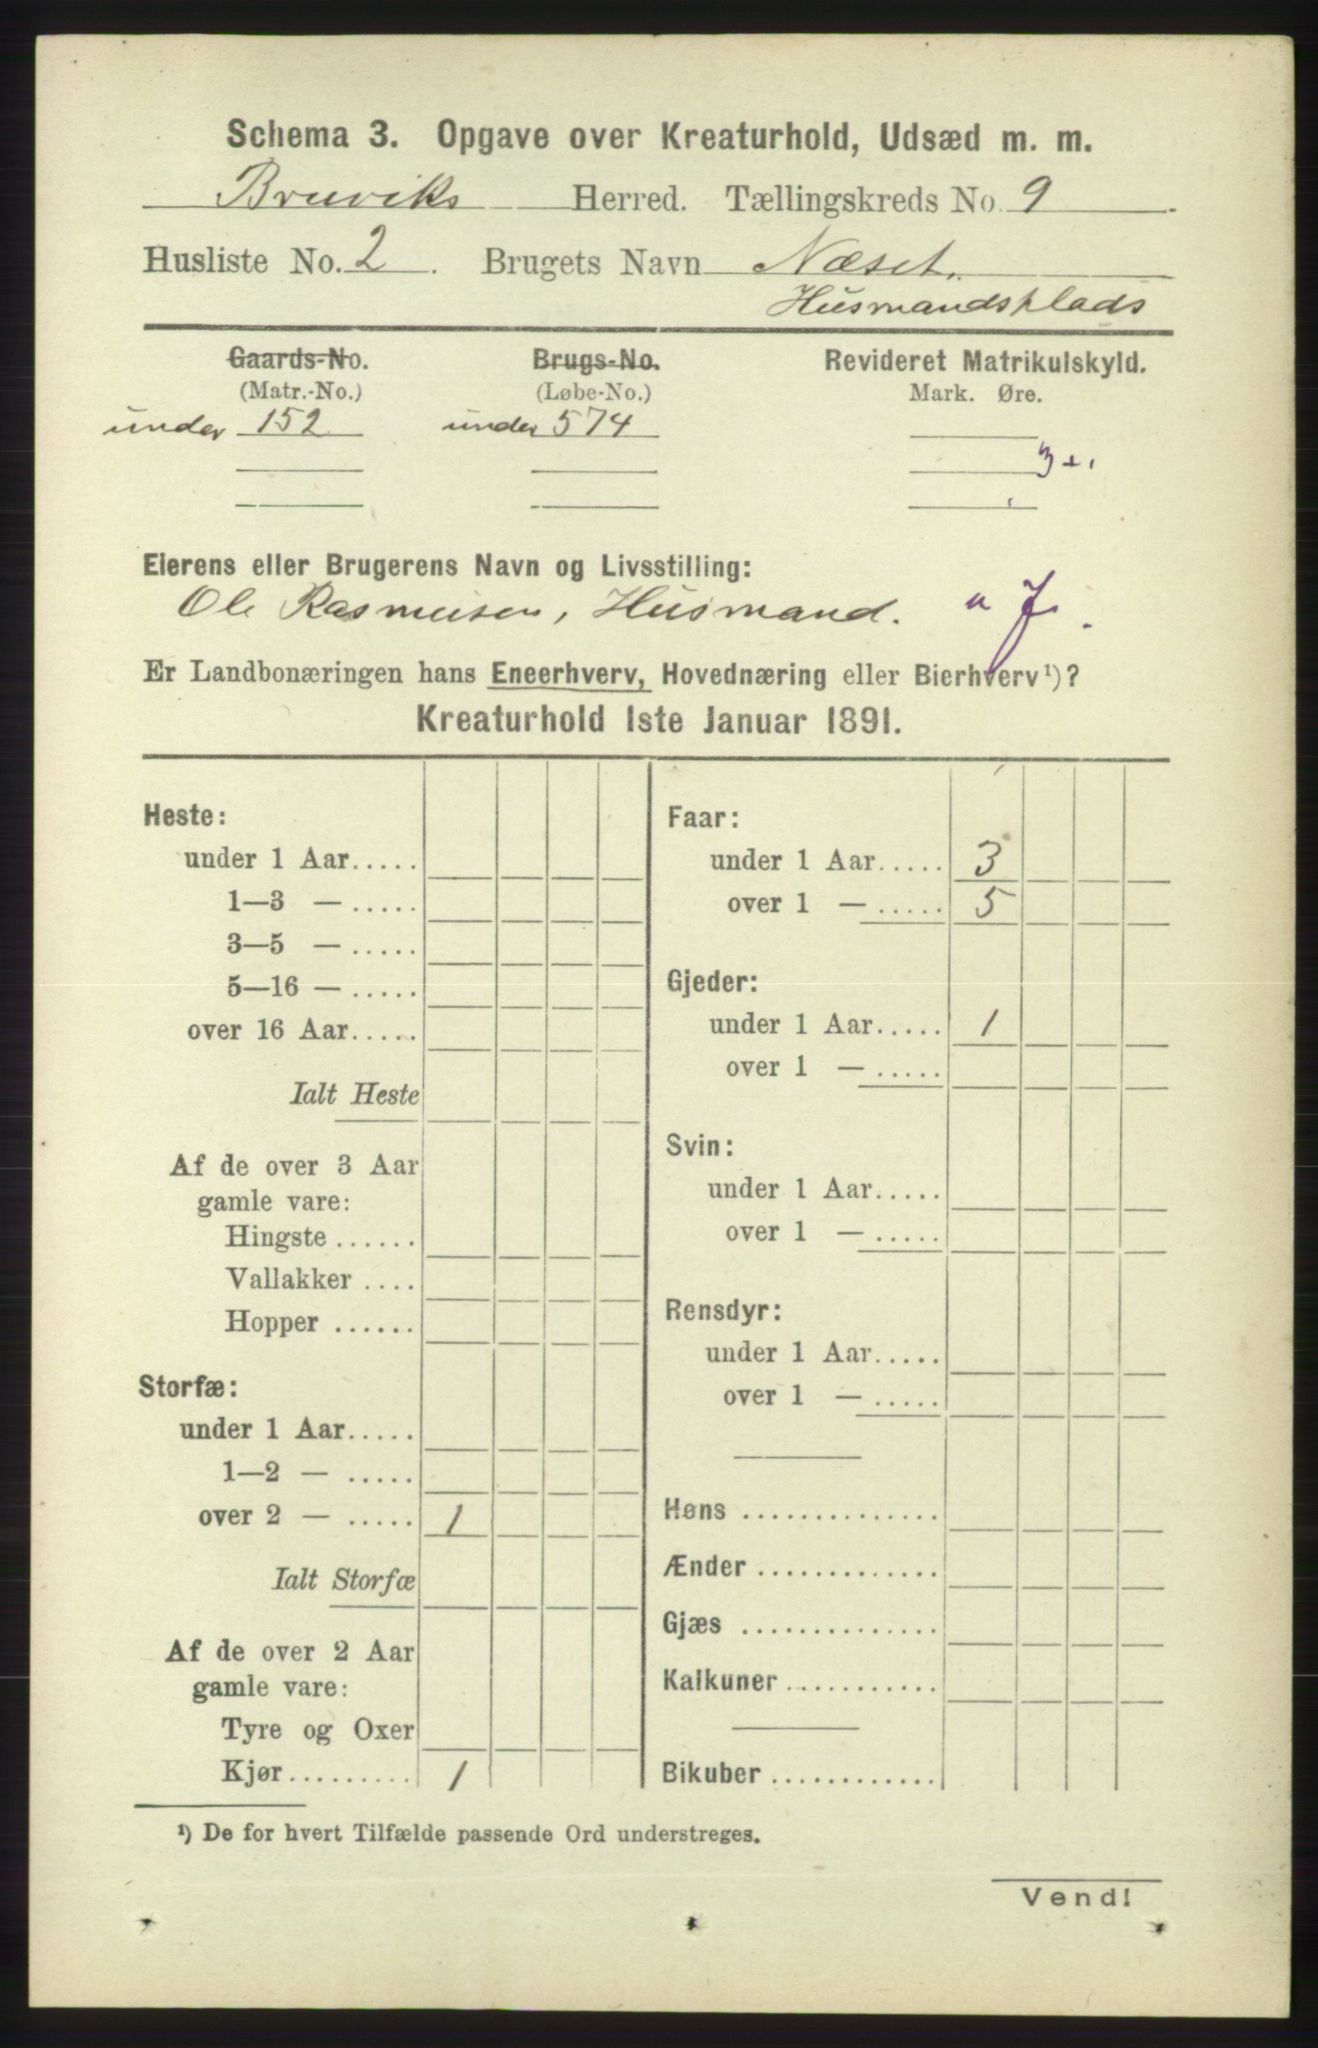 Schema 3. Opgave over Kreaturhold, Udsæd m. m.
Bruviks Herred. Tællingskreds No. 9.
Husliste No. 2. Brugets Navn Næset.
Husmandsplads
Gaards-No. Brugs-No. Revideret Matrikulskyld.
(Matr.-No.) (Løbe-No.) Mark. Øre.
under 152 under 574
3 +
Eierens eller Brugerens Navn og Livsstilling:
Ole Rasmusen, Husmand.
Er Landbonæringen hans Eneerhverv, Hovednæring eller Bierhverv¹)?
Kreaturhold 1ste Januar 1891.
Heste:
under 1 Aar.....
1—3 — .....
3—5 — .....
5—16 — .....
over 16 Aar.....
Ialt Heste
Af de over 3 Aar
gamle vare:
Hingste ......
Vallakker ....
Hopper ......
Storfæ:
under 1 Aar.....
1—2 — .....
over 2 — ..... 1
Ialt Storfæ
Af de over 2 Aar
gamle vare:
Tyre og Oxer
Kjør.......... 1
Faar:
under 1 Aar..... 3
over 1 — ..... 5
Gjeder:
under 1 Aar..... 1
over 1 — .....
Svin:
under 1 Aar.....
over 1 — .....
Rensdyr:
under 1 Aar.....
over 1 — .....
Høns ..............
Ænder .............
Gjæs ..............
Kalkuner ...........
Bikuber ............
¹) De for hvert Tilfælde passende Ord understreges.
Vend!